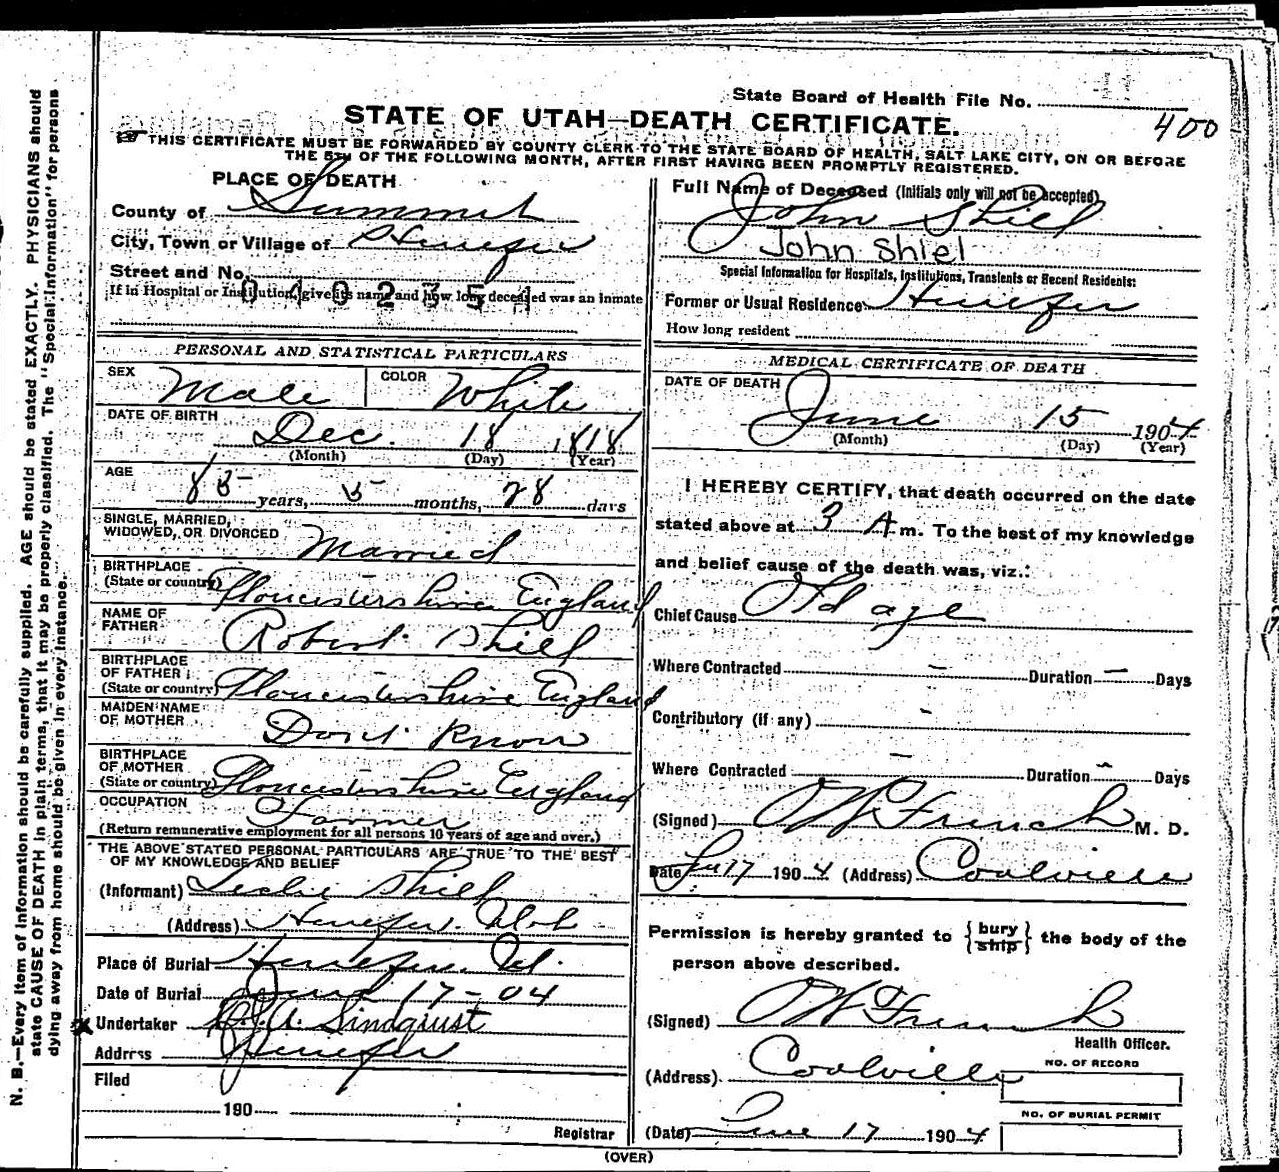 State Board of Health File No.
400
STATE OF UTAH—DEATH CERTIFICATE.
THIS CERTIFICATE MUST BE FORWARDED BY COUNTY CLERK TO THE STATE BOARD OF HEALTH, SALT LAKE CITY, ON OR BEFORE
THE 5TH OF THE FOLLOWING MONTH, AFTER FIRST HAVING BEEN PROMPTLY REGISTERED.
PLACE OF DEATH
County of Summit
City, Town or Village of Henefer
Street and No.
If in Hospital or Institution, give its name and how long deceased was an inmate
0402351
PERSONAL AND STATISTICAL PARTICULARS
SEX Male COLOR White
DATE OF BIRTH
Dec. 18 1818
(Month) (Day) (Year)
AGE
85 years, 5 months, 28 days
SINGLE, MARRIED,
WIDOWED, OR DIVORCED Married
BIRTHPLACE
(State or country) Gloucestershire England
NAME OF
FATHER Robert Shill
BIRTHPLACE
OF FATHER
(State or country) Gloucestershire England
MAIDEN NAME
OF MOTHER Don't Know
BIRTHPLACE
OF MOTHER
(State or country) Gloucestershire England
OCCUPATION Farmer
(Return remunerative employment for all persons 10 years of age and over.)
THE ABOVE STATED PERSONAL PARTICULARS ARE TRUE TO THE BEST
OF MY KNOWLEDGE AND BELIEF
(Informant) Leslie Shill
(Address) Henefer. Utah
Place of Burial Henefer. Ut.
Date of Burial June 17-04
x Undertaker A. Lindquist
Address Henefer
Filed
190
Registrar
Full Name of Deceased (Initials only will not be accepted)
John Shiel
John Shiel
Special Information for Hospitals, Institutions, Transients or Recent Residents:
Former or Usual Residence Henefer
How long resident
MEDICAL CERTIFICATE OF DEATH
DATE OF DEATH
June 15 1904
(Month) (Day) (Year)
I HEREBY CERTIFY, that death occurred on the date
stated above at 3 A m. To the best of my knowledge
and belief cause of the death was, viz.:
Chief Cause Old age
Where Contracted – Duration – Days
Contributory (if any) -
Where Contracted – Duration – Days
(Signed) O W French M. D.
Date 17 1904 (Address) Coalville
Permission is hereby granted to {bury
ship} the body of the
person above described.
(Signed) O W French
Health Officer.
(Address) Coalville
NO. OF RECORD
NO. OF BURIAL PERMIT
(Date) June 17 1904
(OVER)
N. B.—Every item of information should be carefully supplied. AGE should be stated EXACTLY. PHYSICIANS should
state CAUSE OF DEATH in plain terms, that it may be properly classified. The "Special Information" for persons
dying away from home should be given in every instance.